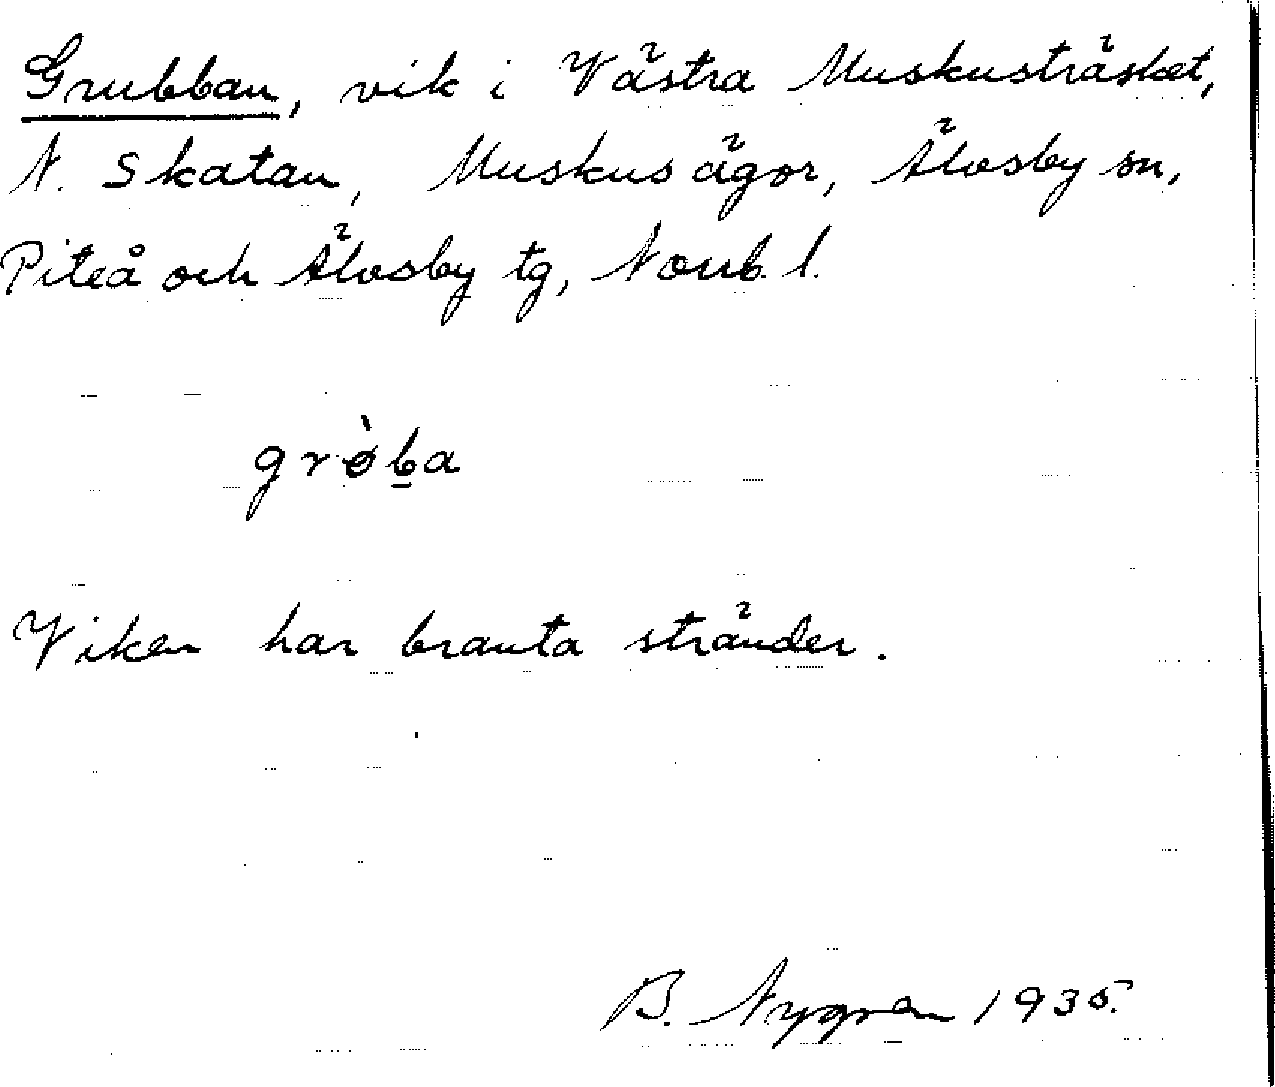 Grubban, vik i Västra Muskusträsket,
N. Skatan, Muskus ägor, Älvsby sn,
Piteå och Älvsby tg, Norrb. l.
grø̀b̲a
Viken har branta stränder.
B. Nygren 1935.